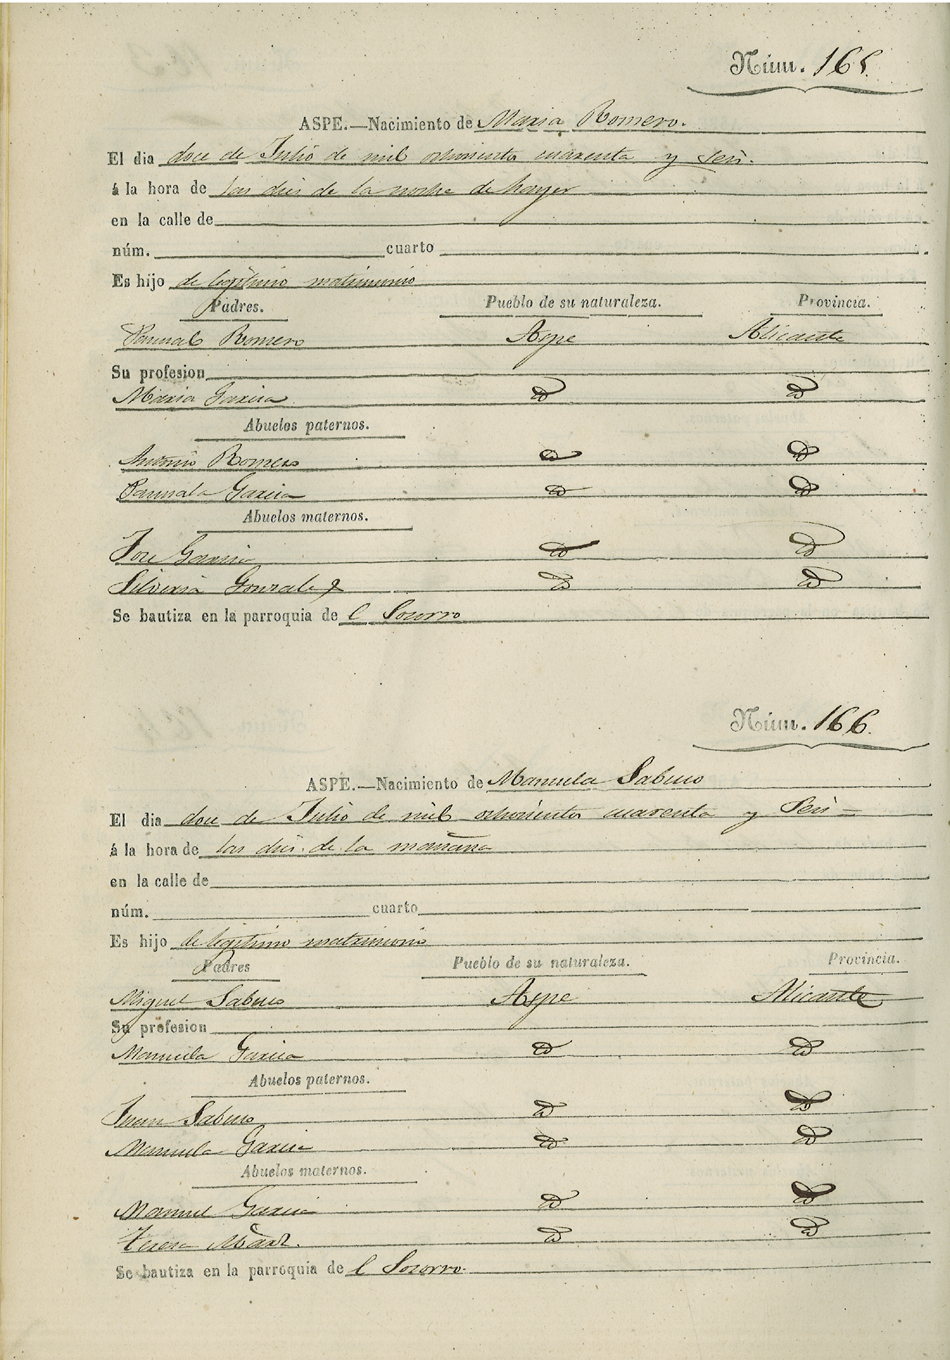 Núm. 165
ASPE.—Nacimiento de Maria Romero.
El dia doce de Julio de mil ochociento cuarenta y seis.
á la hora de las dies de la noche de hayer
en la calle de
núm. cuarto
Es hijo de legitimo matrimonio
Padres. Pueblo de su naturaleza. Provincia.
Pascual Romero Aspe Alicante
Su profesion
Maria Garcia id id
Abuelos paternos.
Antonio Romero id id
Pascuala Garcia id id
Abuelos maternos.
Jose Garcia id id
Silveria Gonzalez id id
Se bautiza en la parroquia de l Socorro
Núm. 166.
ASPE.—Nacimiento de Manuela Sabuco
El dia doce de Julio de mil ochociento cuarenta y Seis
á la hora de las dies de la mañana
en la calle de
núm. cuarto
Es hijo de legitimo matrimonio
Padres Pueblo de su naturaleza. Provincia.
Miguel Sabuco Aspe Alicante
Su profesion
Manuela Garcia id id
Abuelos paternos.
Juan Sabuco id id
Manuela Garcia id id
Abuelos maternos.
Manuel Garcia id id
Teresa id id
Se bautiza en la parroquia de l Socorro.